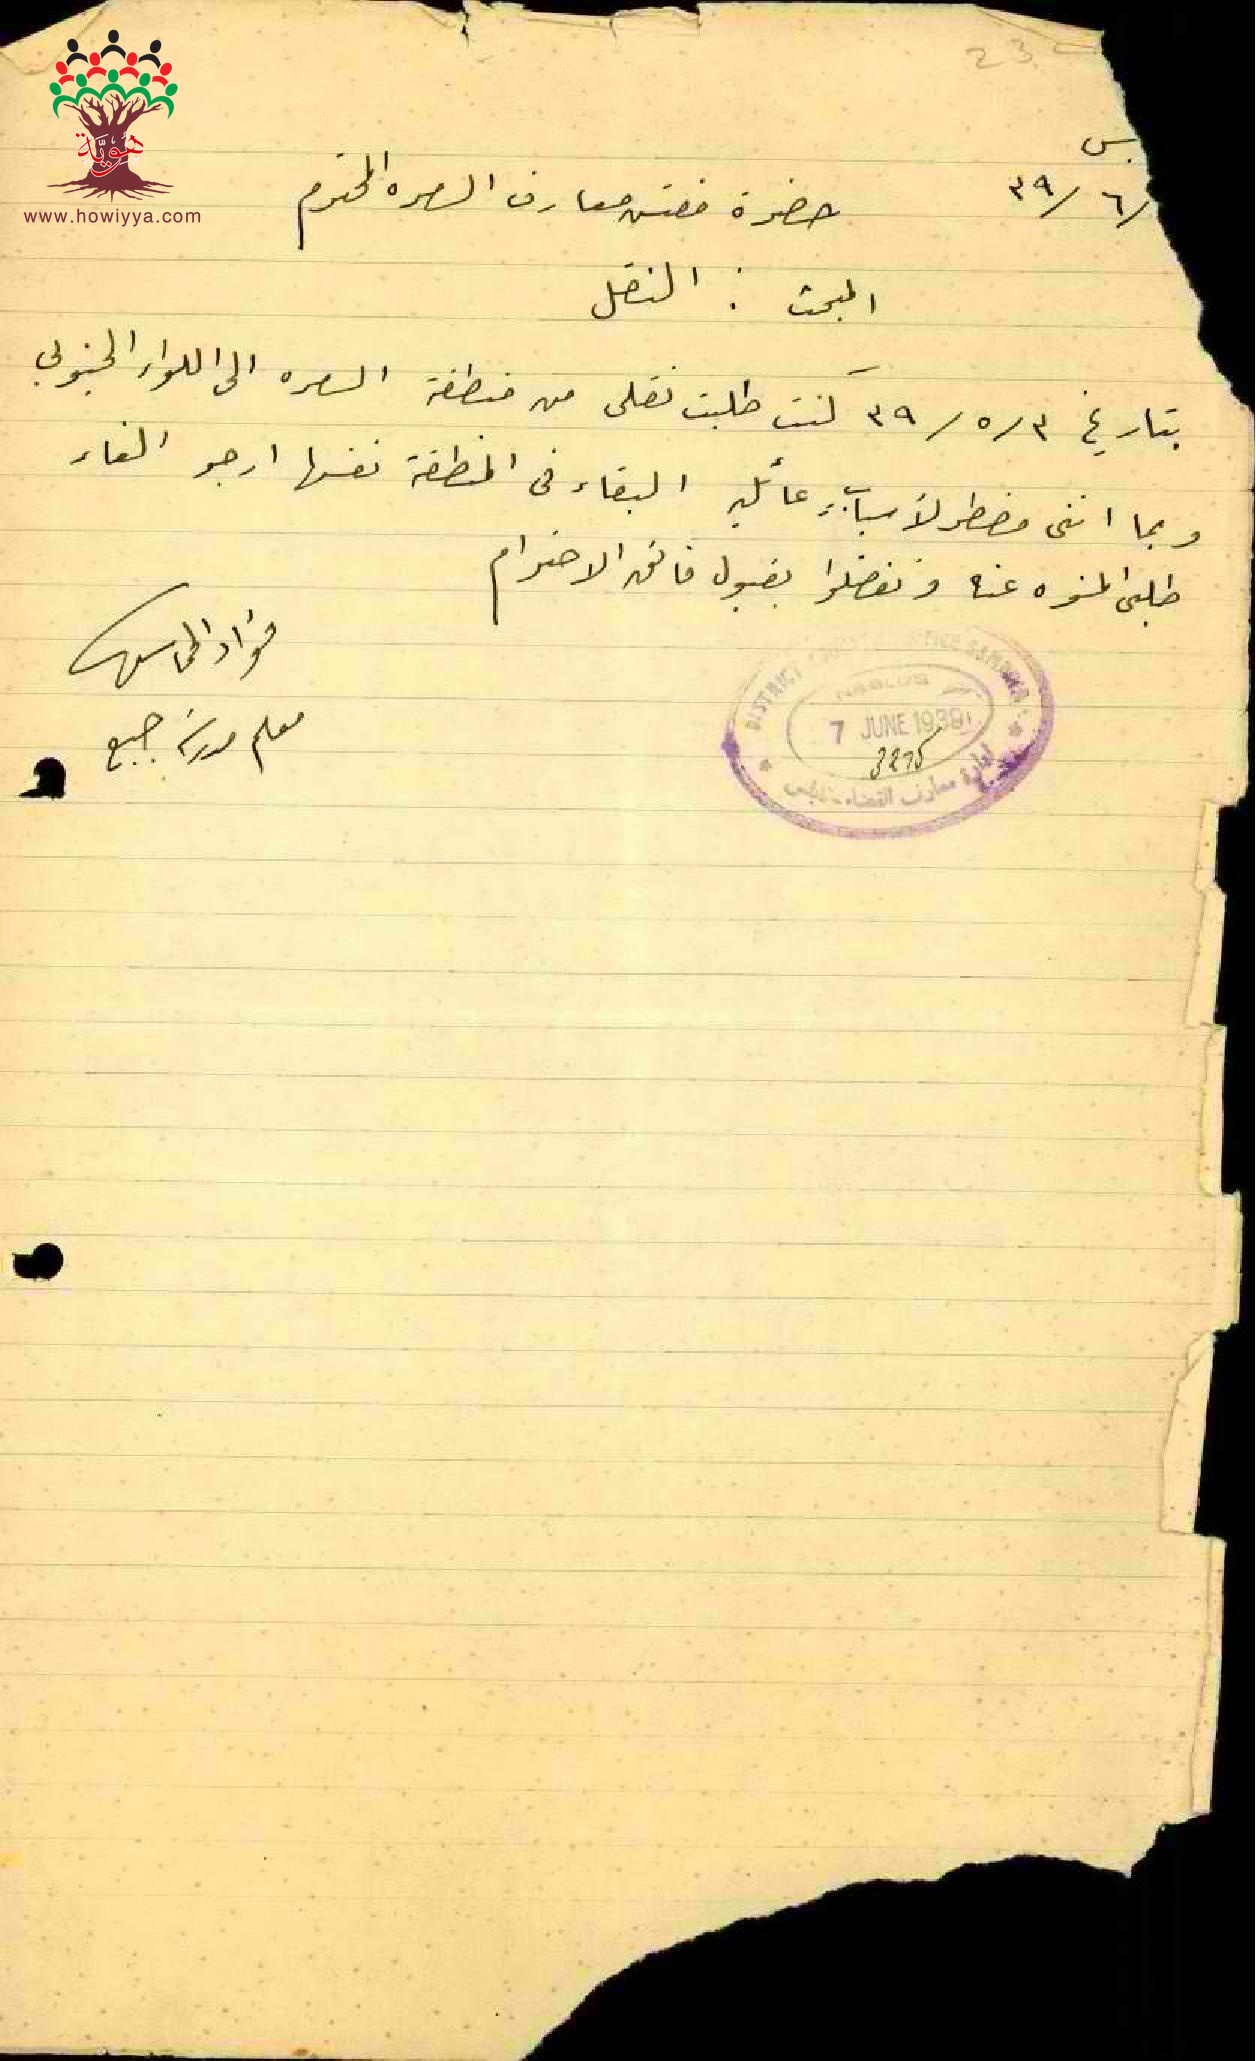 23
هوية
www.howiyya.com
س
/٦/٣٩
حضرة مفتش معارف السامره المحترم
المبحث : النقل
بتاريخ ٣/٥/٣٩ كنت طلبت نقلي من منطقة السامره الى اللواء الجنوبي
وبما انني مضطر لأسباب عائليه البقاء في المنطقة نفسها ارجو الغاء
طلبي المنوه عنه وتفضلوا بقبول فائق الاحترام
فؤاد
معلم مدرسة جبع
DISTRICT OFFICE SAMARIA
NABLUS
7 JUNE 1939
3275
ادارة معارف القضاء - نابلس